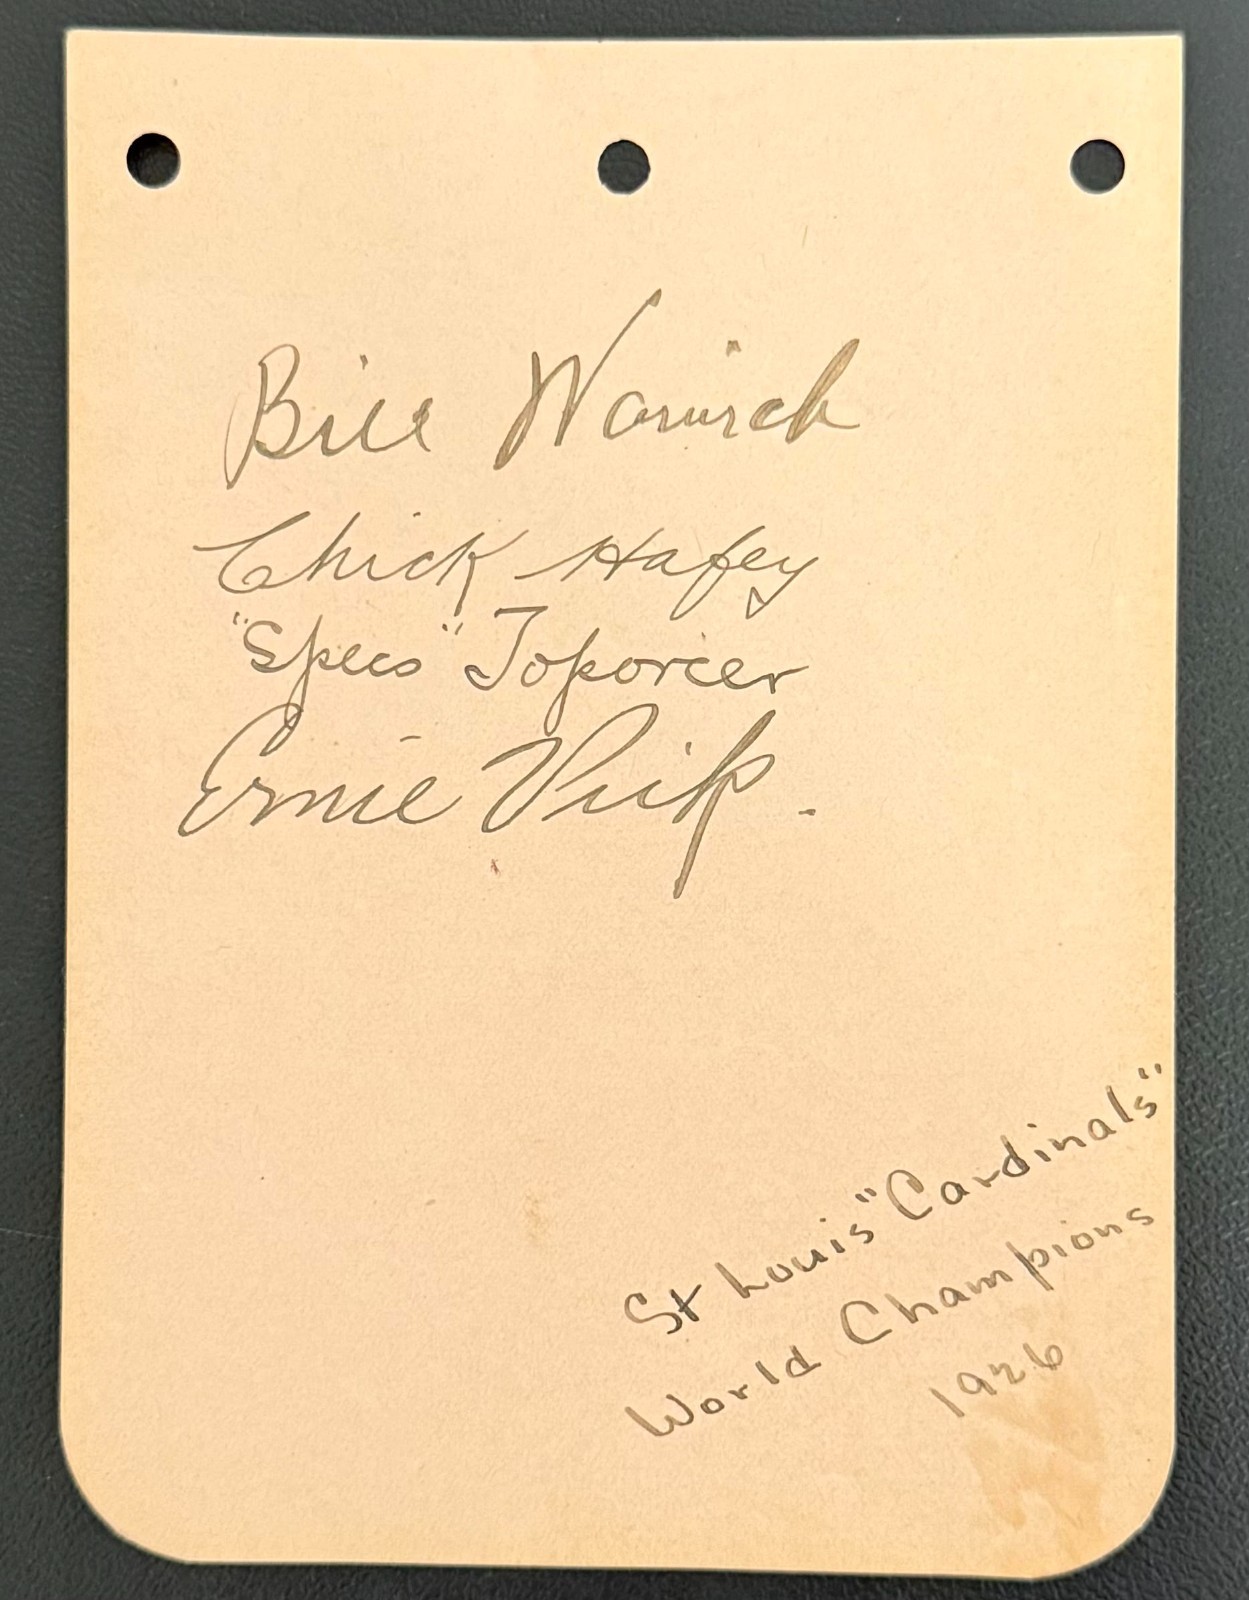 Bill Warwick
Chick Hafey
"Specs" Toporcer
Ernie Vick.
St Louis "Cardinals"
World Champions
1926